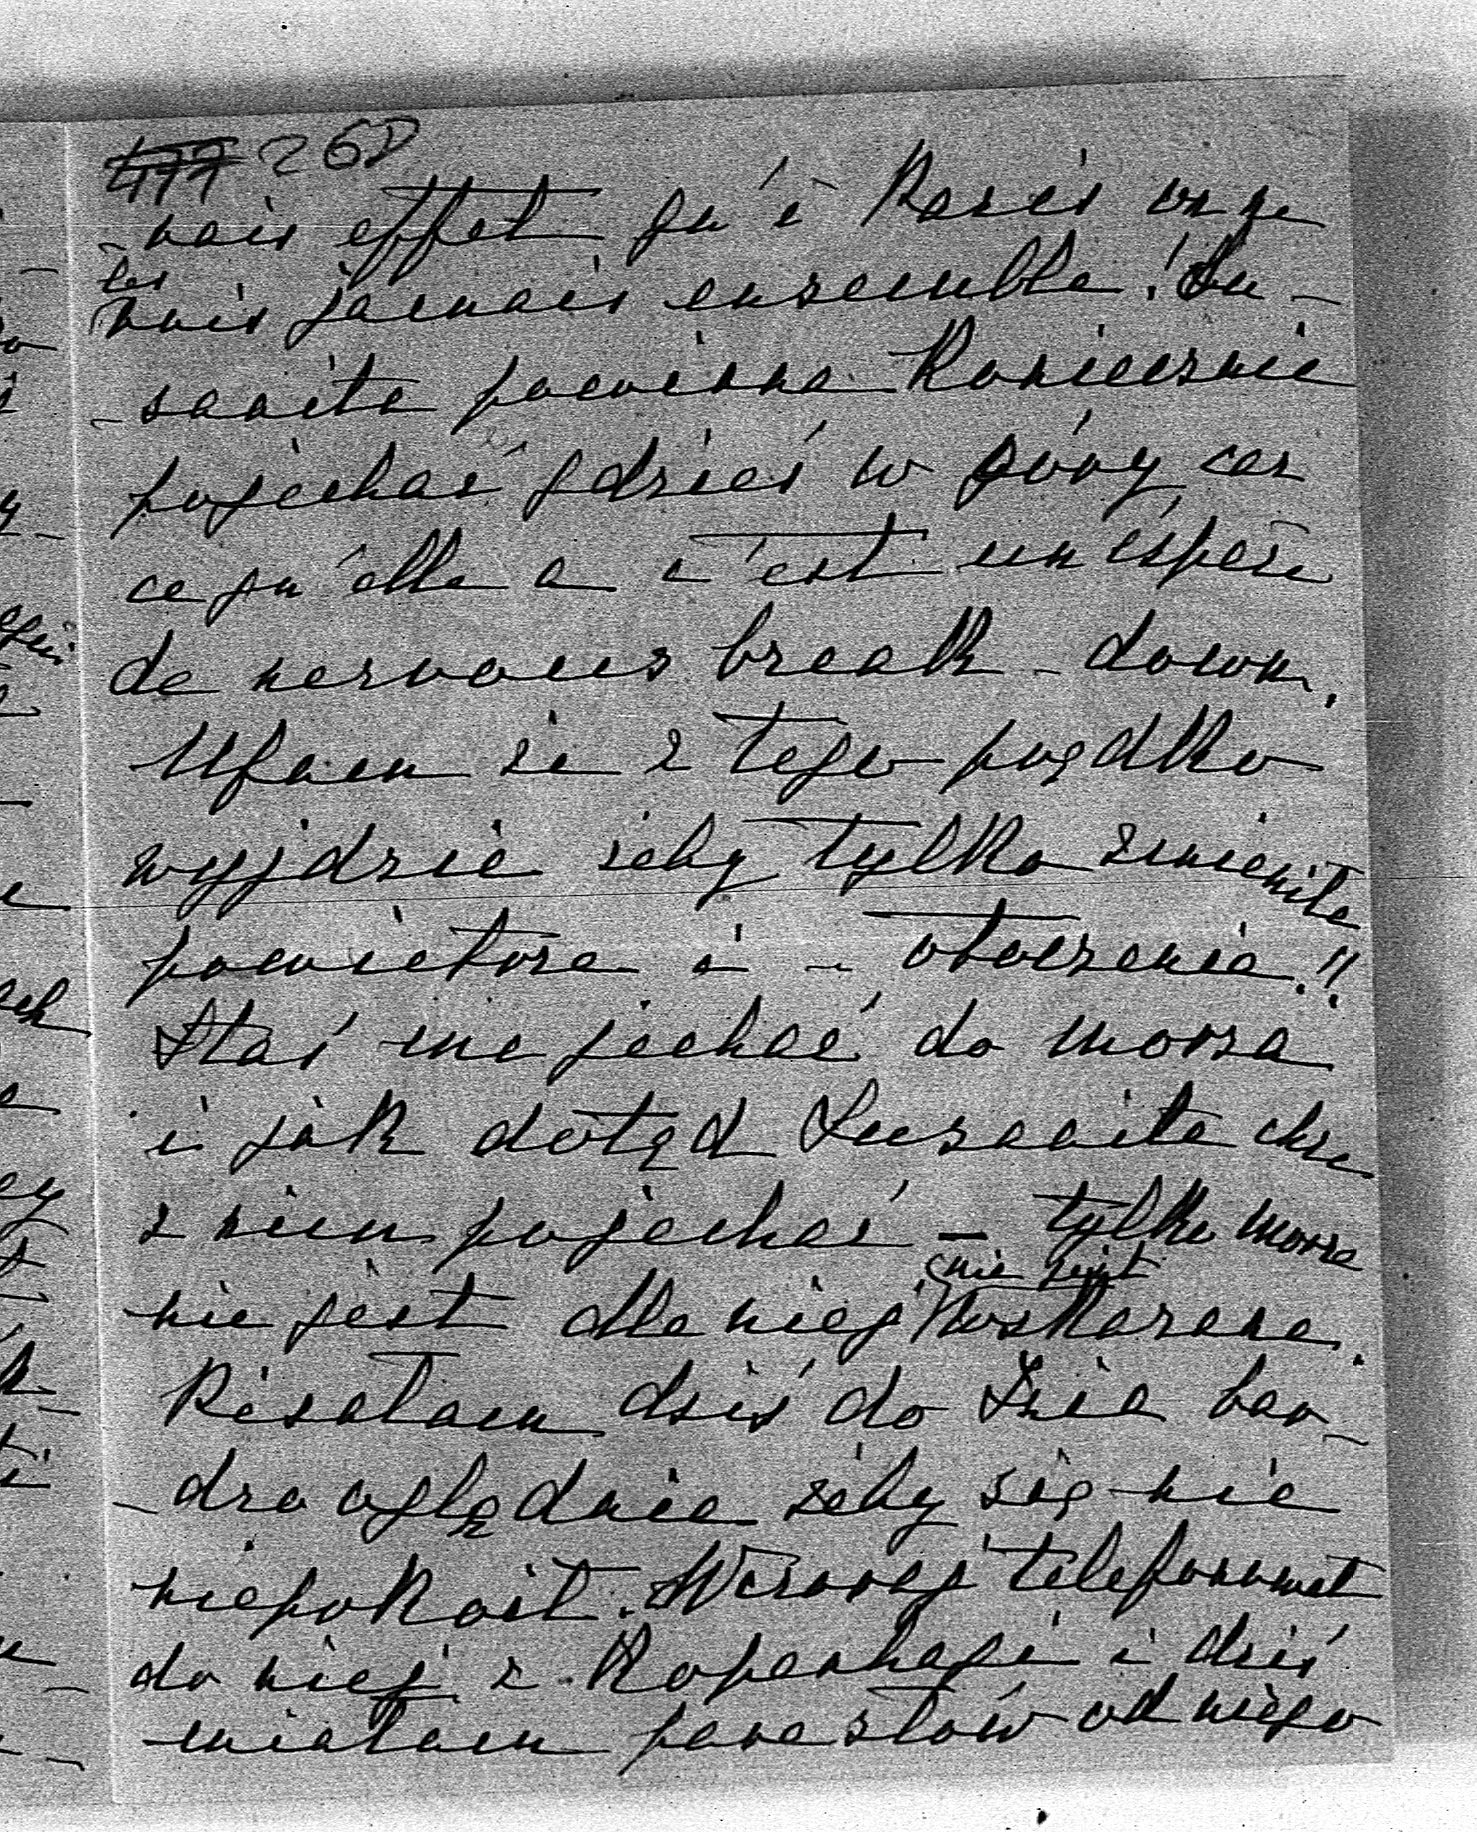 477 268
-vais effet qu'à Paris on ne
les
voit jamais ensemble! Su-
-sanita powinna koniecznie
pojechać gdzieś w góry car
ce qu'elle a c'est un éspèce
de nervous break-down.
Ufam że z tego prędko
wyjdzie żeby tylko zmieniła
powietrze i - otoczenie!!
Staś ma jechać do morza
i jak dotąd Suzanita chce
z nim pojechać - tylko morze
nie jest
nie jest dla niej wskazane.
Pisałam dziś do Zia bar-
-dzo oględnie żeby się nie
niepokoił. Wczoraj telefonował
do niej z Kopenhagi i dziś
miałam parę słów od niego